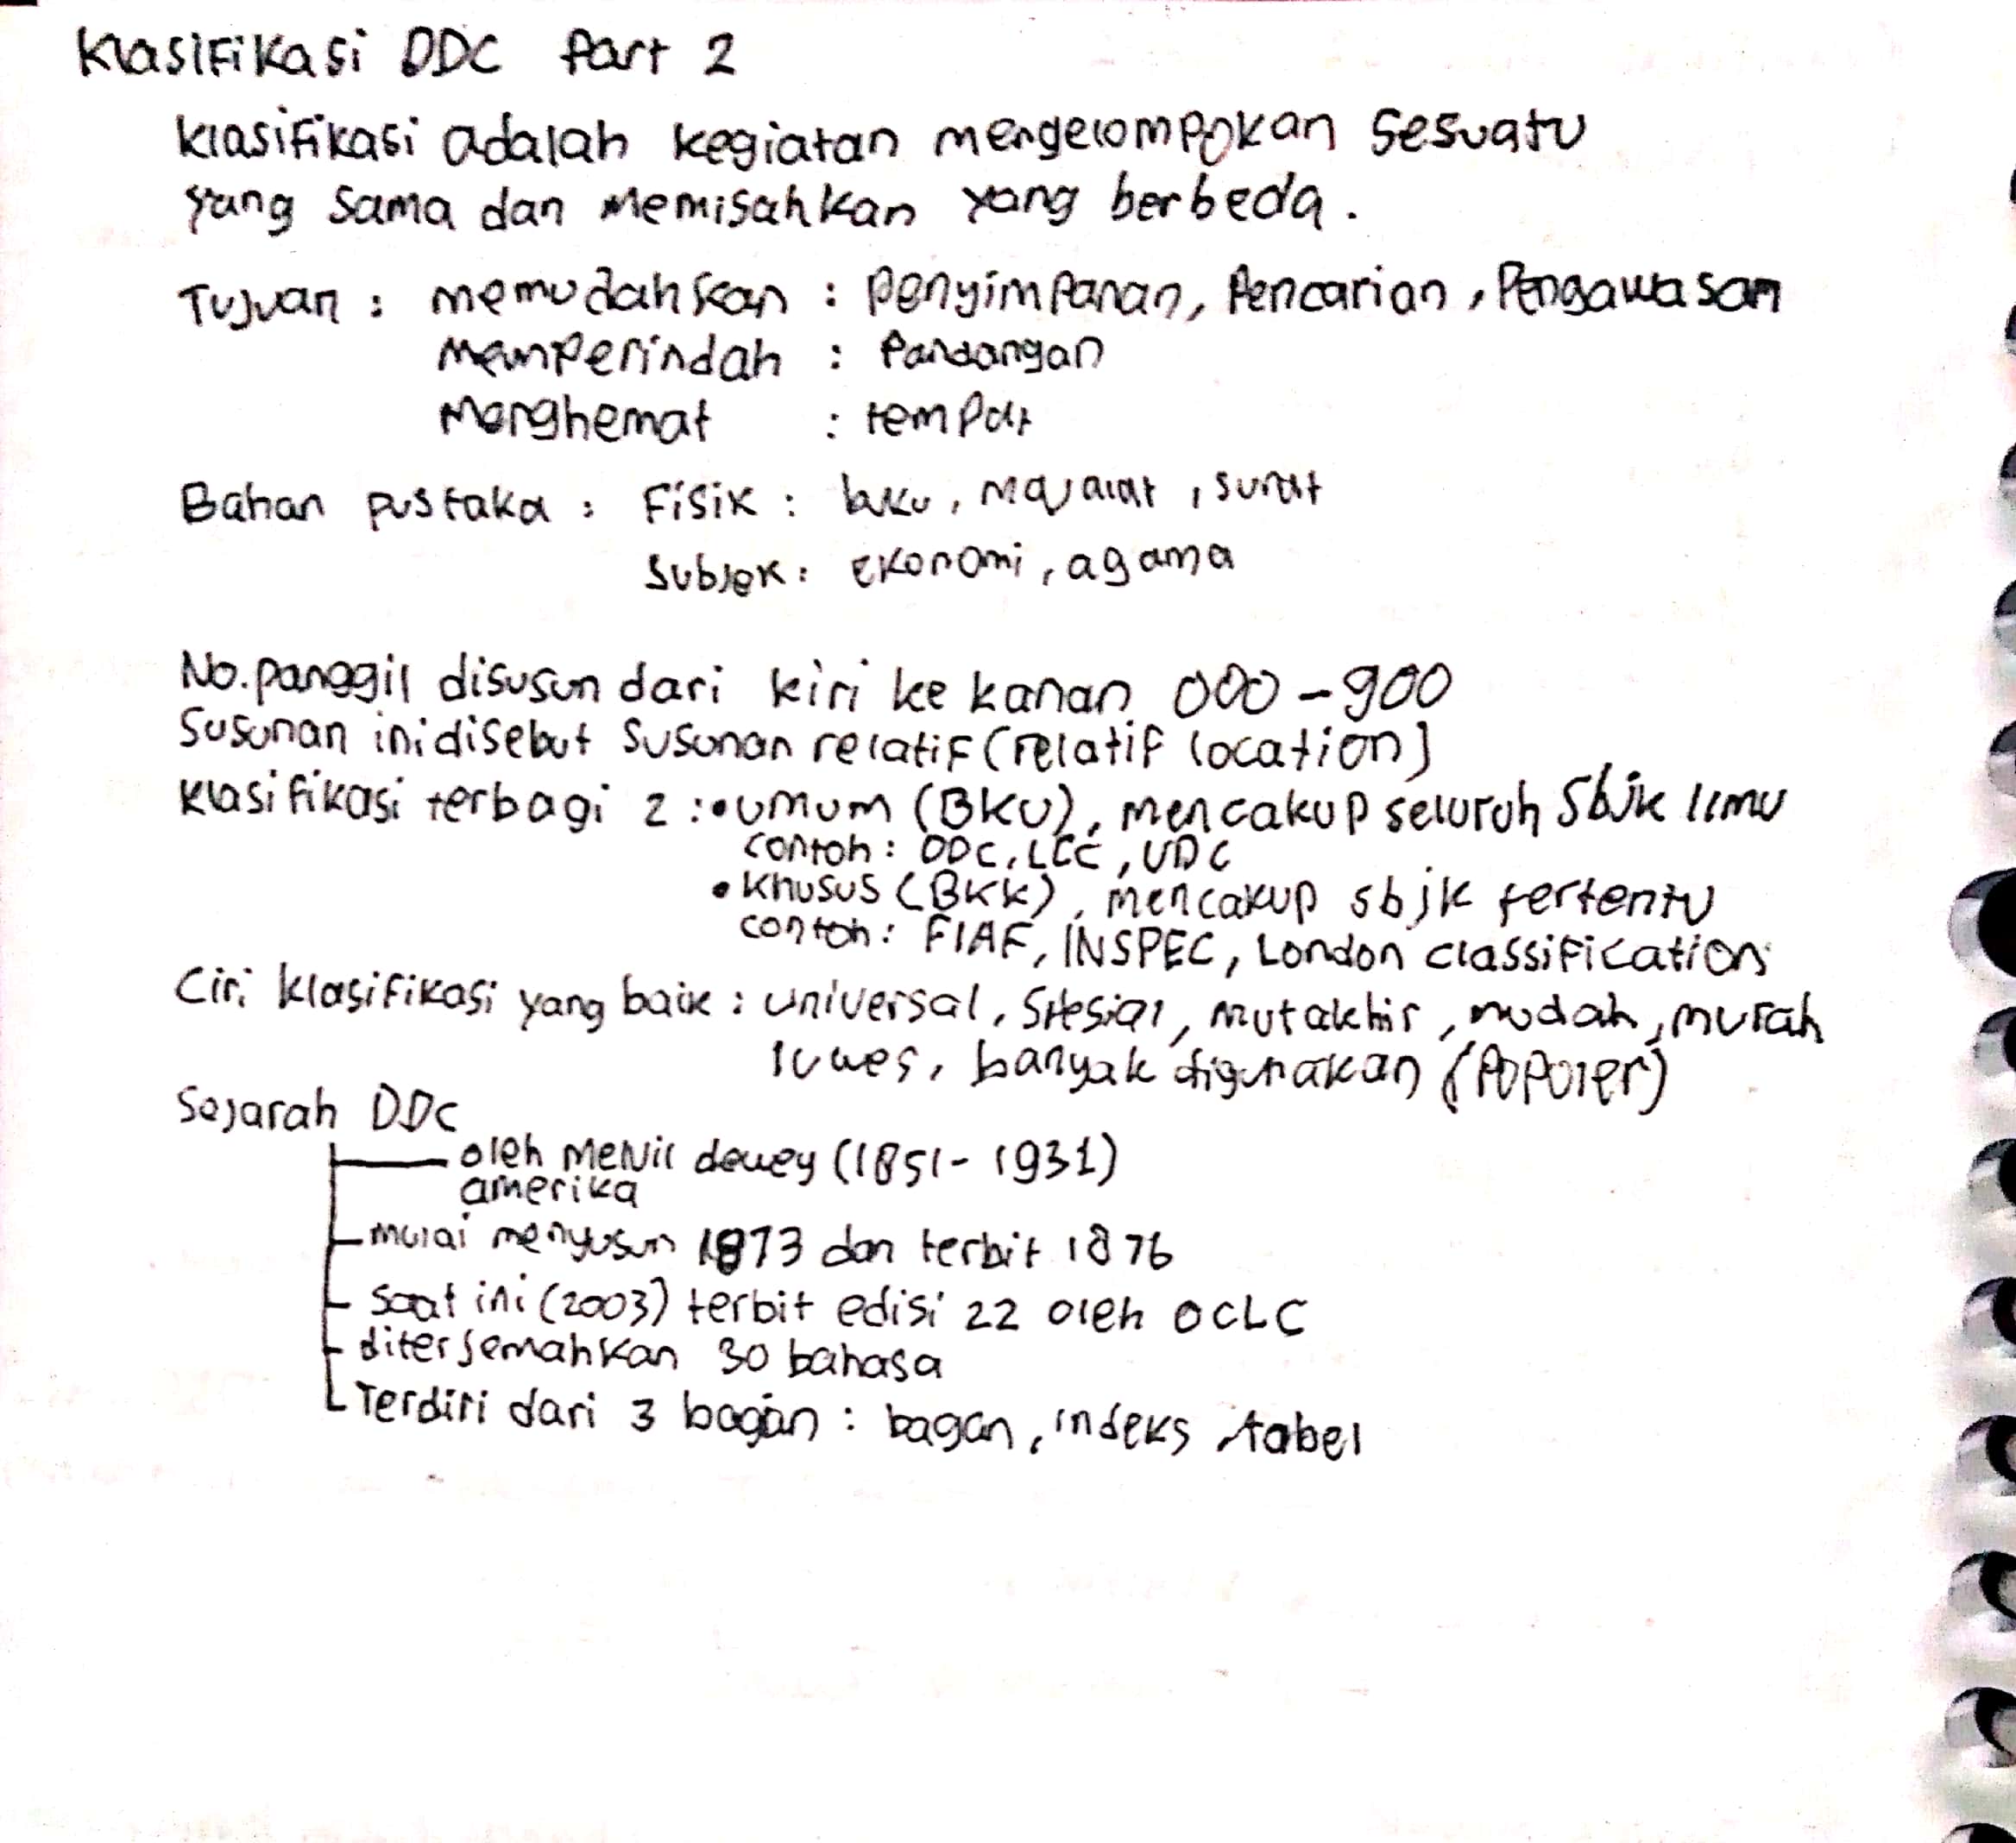 Klasifikasi DDC Part 2
klasifikasi adalah kegiatan mengelompokan sesuatu
yang sama dan memisahkan yang berbeda.
Tujuan : memudahkan : penyimpanan, Pencarian, Pengawasan
memperindah : Pandangan
Menghemat : tempat
Bahan pustaka : Fisik : buku, majalah, surat
Subjek : Ekonomi, agama
No.panggil disusun dari kiri ke kanan 000 - 900
Susunan ini disebut susunan relatif (relatif location)
Klasifikasi terbagi 2 : • umum (BKU), mencakup seluruh sbjk ilmu
contoh : DDC, LCC, UDC
• Khusus (BKK), mencakup sbjk tertentu
contoh : FIAF, INSPEC, London classification
Ciri klasifikasi yang baik : universal, spesial, mutakhir, mudah, murah
luwes, banyak digunakan (populer)
Sejarah DDC
oleh Melvil dewey (1851 - 1931)
amerika
mulai menyusun 1873 dan terbit 1876
saat ini (2003) terbit edisi 22 oleh OCLC
diterjemahkan 30 bahasa
Terdiri dari 3 bagian : bagan, indeks, tabel